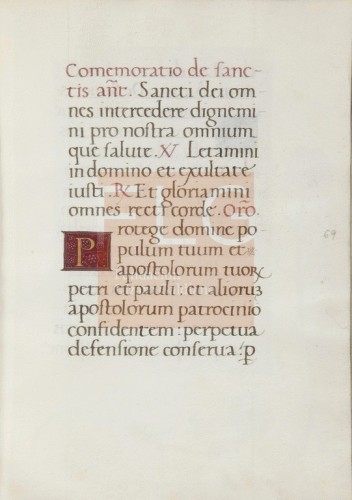 Comemoratio de sanc-
tis añt. Sancti dei om
nes intercedere dignemi
ni pro nostra omnium
que salute. V Letamini
in domino et exultate
iusti. R Et gloriamini
omnes recti corde. Oro.
Protege domine po
pulum tuum et
apostolorum tuoꝝ
petri et pauli et alioruꝫ
apostolorum patrocinio
confidentem: perpetua
defensione conserua: ꝑ
69